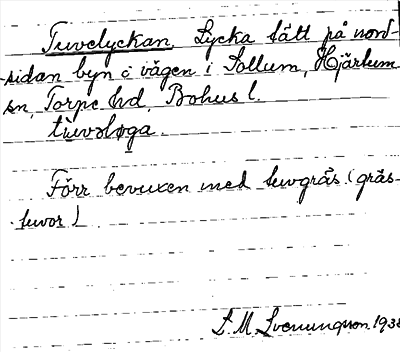 Tuvelyckan. Lycka tätt på nord-
sidan byn o vägen i Sollum, Hjärtum
sn, Torpe hd, Bohus l.
Förr bevuxen med tuvgräs (gräs-
tuvor)
S. M. Svenungsson 193